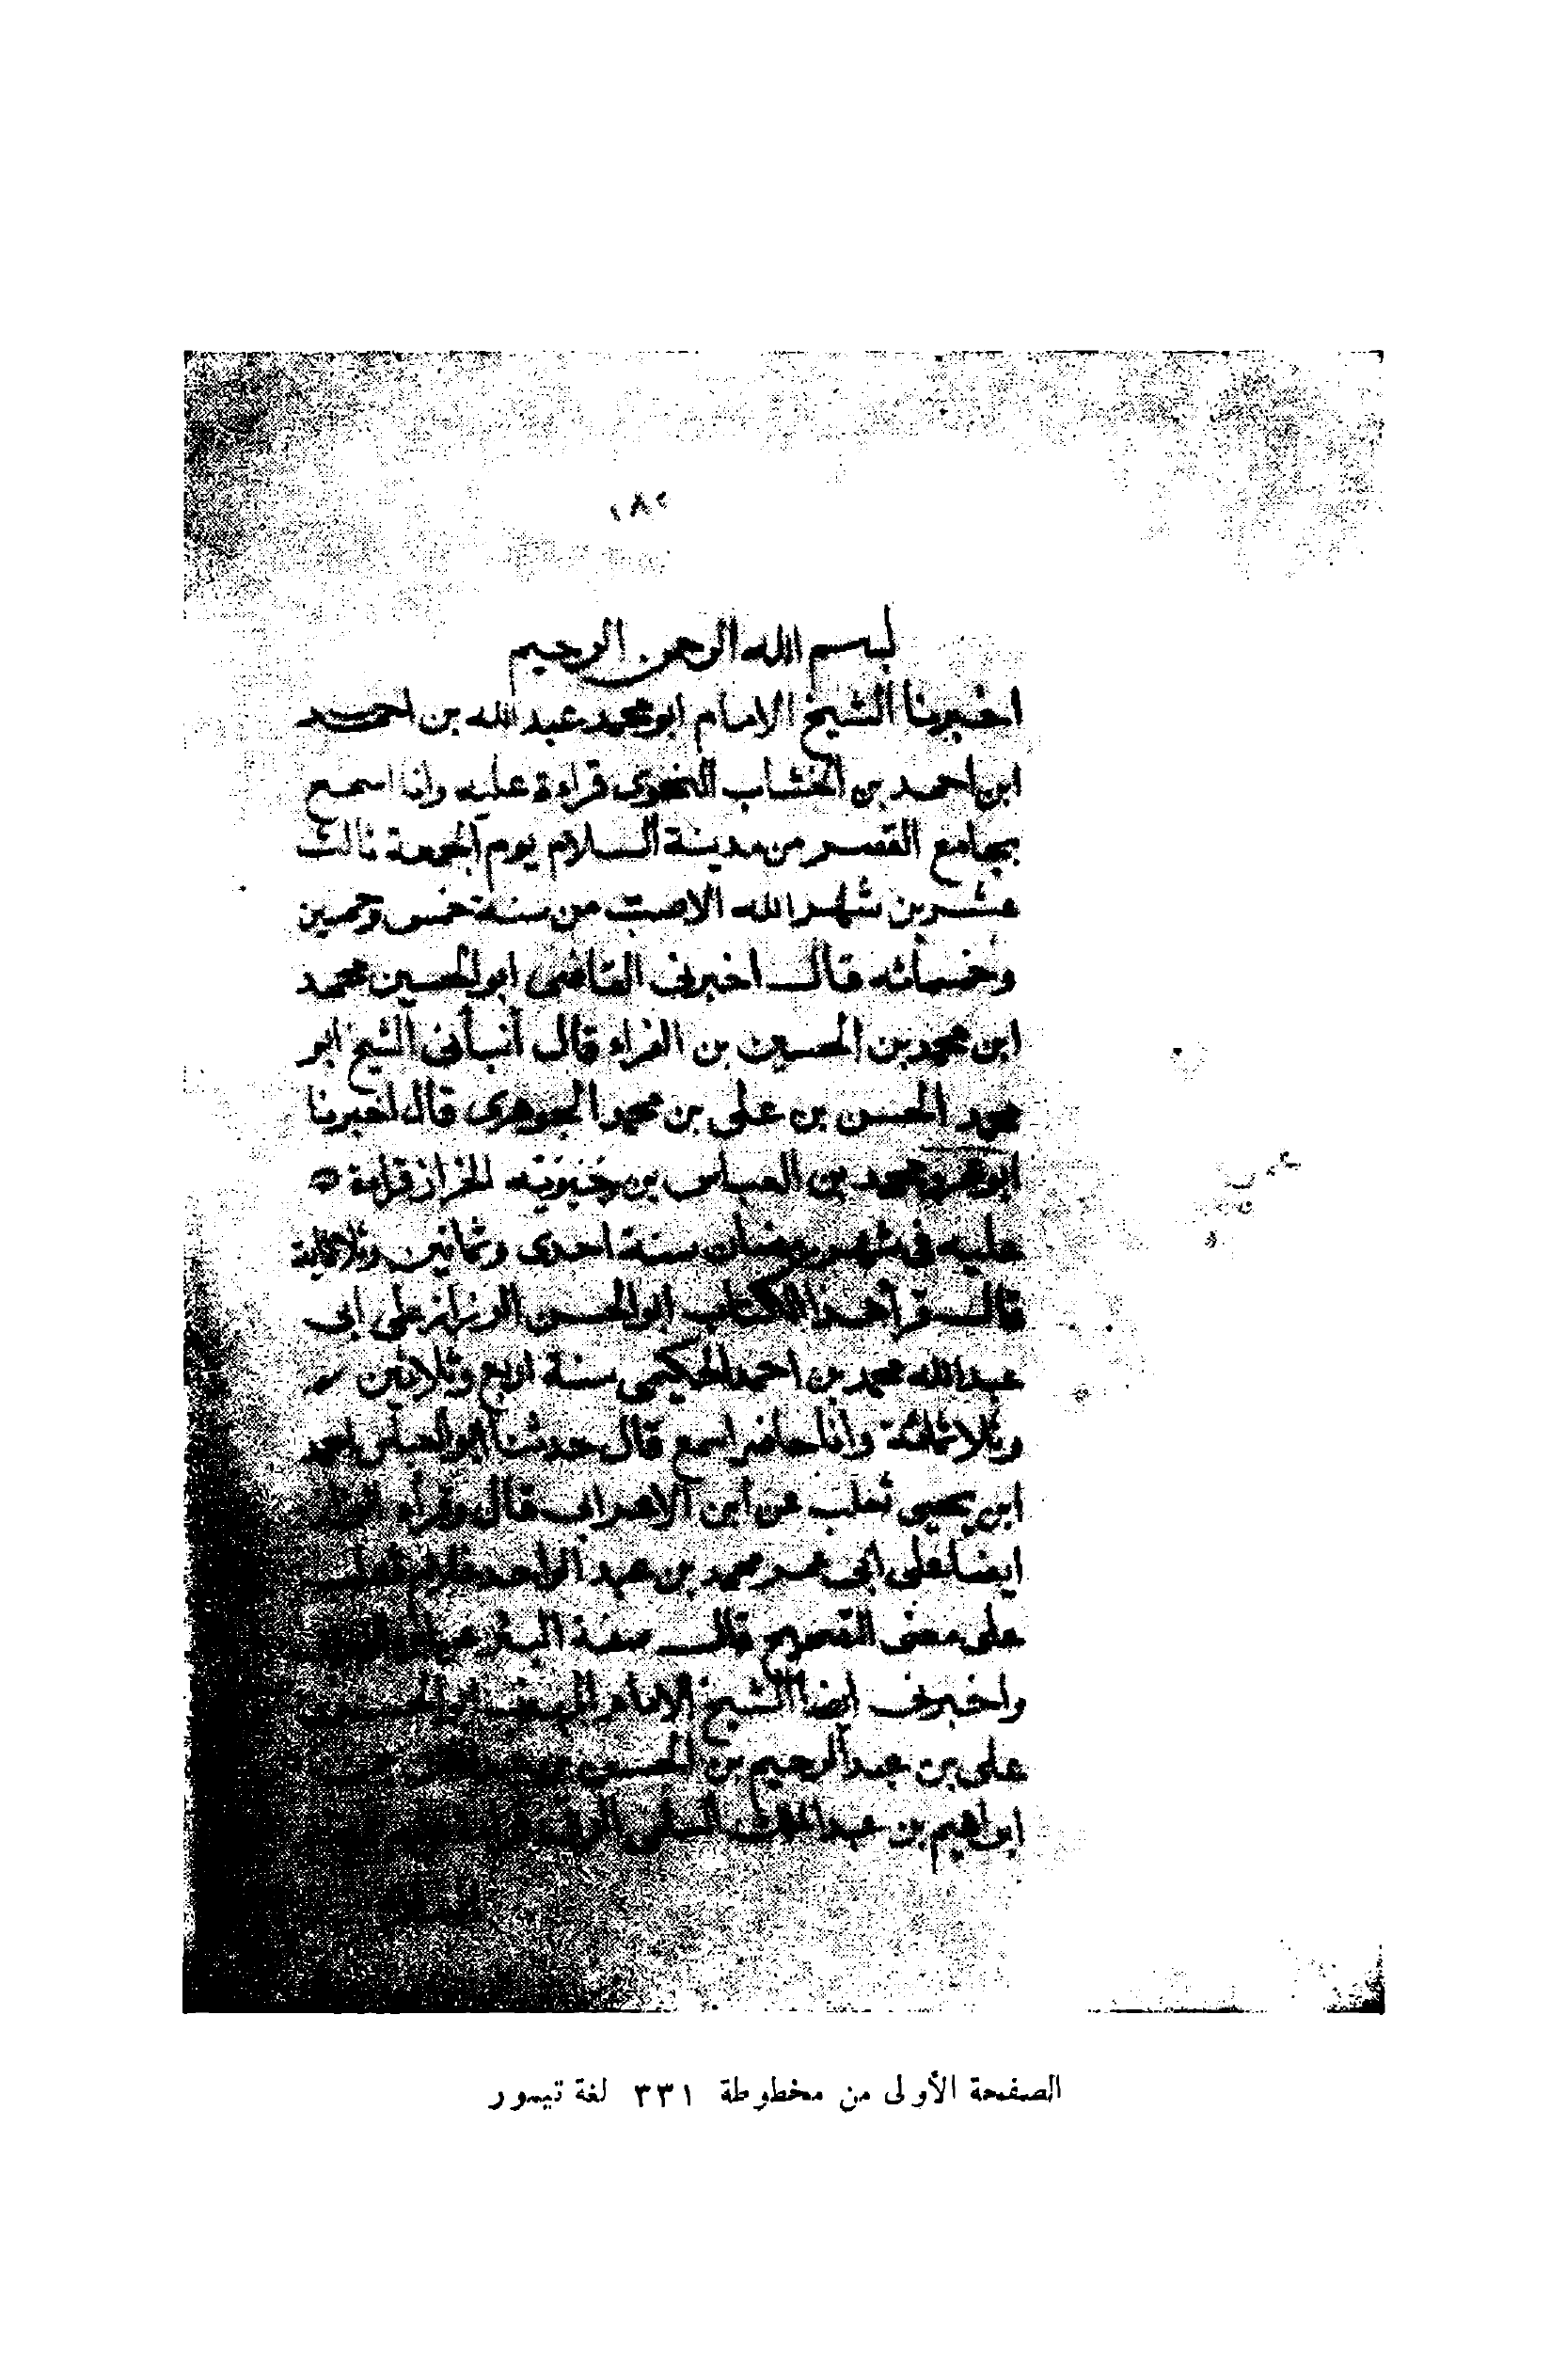 ١٨٢
بسم الله الرحمن الرحيم
اخبرنا الشيخ الامام ابو محمد عبد الله بن احمد
ابن احمد بن الخشاب النحوى قراءة عليه وانا اسمع
بجامع القصر من مدينة السلام يوم الجمعة ثالث
عشرين شهر الله الاصب من سنة خمس وخمسين
وخمسمائه قال اخبرنى القاضى ابو الحسين محمد
ابن محمد بن الحسين بن الفراء قال أنبأنى الشيخ ابو
محمد الحسن بن على بن محمد الجوهرى قال اخبرنا
ابو عمر محمد بن العباس بن حيويه الخزاز قراءة
عليه فى شهر رمضان سنة احدى وثمانين وثلاثماية
قال قرأ هذا الكتاب ابو الحسن الرزاز على أبى
عبد الله محمد بن احمد الحكيمى سنة اربع وثلاثين
وثلاثمائة وأنا حاضر اسمع قال حدثنا ابو العباس احمد
ابن يحيى ثعلب عن ابن الاعرابى قال وقرأه
ايضا على أبى عمر محمد بن عبد الواحد
على معنى الفصيح قال صفة البئر
واخبرنى ايضا الشيخ الامام
على بن عبد الرحيم بن الحسن
ابراهيم بن عبد الملك السلمى الرقى
الصفحة الأولى من مخطوطة ٣٣١ لغة تيمور